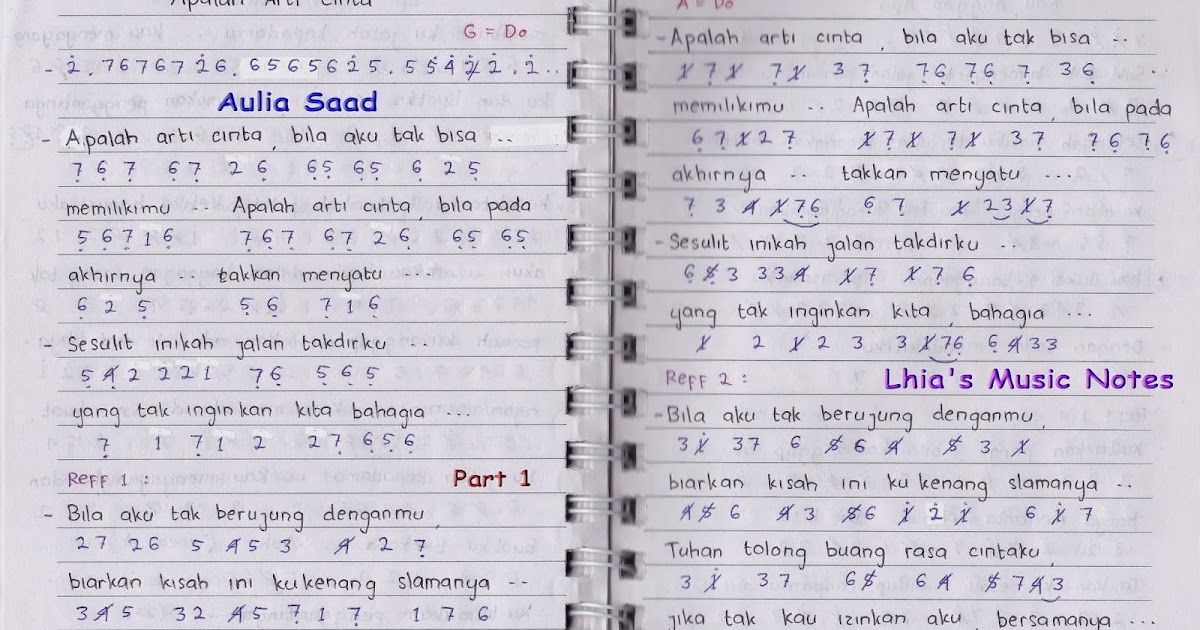 Apalah Arti Cinta
G = Do
- 2̇ . 7 6 7 6 7 2̇ 6 . 6 5 6 5 6 2̇ 5 . 5 5 4̸ 2̸ 2̇ . 1̇ ..
Aulia Saad
- Apalah arti cinta, bila aku tak bisa ..
7̣ 6̣ 7̣ 6̣ 7̣ 2 6̣ 6̣ 5̣ 6̣ 5̣ 6̣ 2 5̣
memilikimu .. Apalah arti cinta, bila pada
5̣ 6̣ 7̣ 1 6̣ 7̣ 6̣ 7̣ 6̣ 7̣ 2 6̣ 6̣ 5̣ 6̣ 5̣
akhirnya .. takkan menyatu ....
6̣ 2 5̣ 5̣ 6̣ 7̣ 1 6̣
- Sesulit inikah jalan takdirku ...
5 4̸ 2 2 2 1 7̣ 6̣ 5̣ 6̣ 5̣
yang tak inginkan kita bahagia ....
7̣ 1 7̣ 1 2 2 7̣ 6̣ 5̣ 6̣
Reff 1 :
Part 1
- Bila aku tak berujung denganmu,
2 7 2 6 5 4̸ 5 3 4̸ 2 7̣
biarkan kisah ini kukenang slamanya ..
3 4̸ 5 3 2 4̸ 5 7̣ 1 7̣ 1 7 6
A = Do
- Apalah arti cinta, bila aku tak bisa ...
1̸ 7̣ 1̸ 7̣ 1̸ 3 7̣ 7̣ 6̣ 7̣ 6̣ 7̣ 3 6̣
memilikimu .. Apalah arti cinta, bila pada
6̣ 7̣ 1̸ 2 7̣ 1̸ 7̣ 1̸ 7̣ 1̸ 3 7̣ 7̣ 6̣ 7̣ 6̣
akhirnya .. takkan menyatu ...
7̣ 3 4̸ 1̸ 7̣ 6̣ 6̣ 7̣ 1̸ 2 3 1̸ 7̣
- Sesulit inikah jalan takdirku ..
6 5̸ 3 3 3 4̸ 1̸ 7̣ 1̸ 7̣ 6̣
yang tak inginkan kita, bahagia ...
1̸ 2 1̸ 2 3 3 1̸ 7̣ 6̣ 6̣ 4̸ 3 3
Reff 2 :
Lhia's Music Notes
- Bila aku tak berujung denganmu,
3 1̸̇ 3 7 6 5̸ 6 4̸ 5̸ 3 1̸
biarkan kisah ini kukenang slamanya ..
4̸ 5̸ 6 4̸ 3 5̸ 6 1̸̇ 2̇ 1̸̇ 6 1̸̇ 7
Tuhan tolong buang rasa cintaku,
3 1̸̇ 3 7 6 5̸ 6 4̸ 5̸ 7 4̸ 3
jika tak kau izinkan aku, bersamanya ...